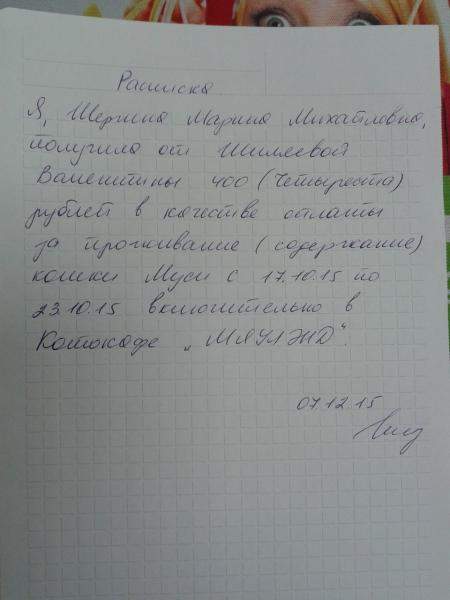 Расписка
Я, Шергина Марина Михайловна,
получила от Шиляевой
Валентины 400 (Четыреста)
рублей в качестве оплаты
за проживание (содержание)
кошки Муси с 17.10.15 по
23.10.15 включительно в
Котокафе „МЯУЛЭНД".
07.12.15